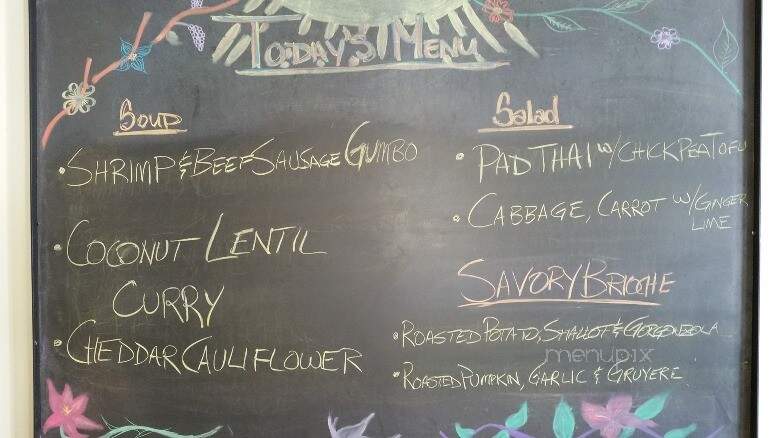 TODAY'S MENU
SOUP
• SHRIMP & BEEF SAUSAGE GUMBO
• COCONUT LENTIL
CURRY
• CHEDDAR CAULIFLOWER
Salad
• PAD THAI w/ CHICKPEA TOFU
• CABBAGE, CARROT W/ GINGER
LIME
SAVORY BRIOCHE
• ROASTED POTATO, SHALLOT & GORGONZOLA
• ROASTED PUMPKIN, GARLIC & GRUYERE
menupix